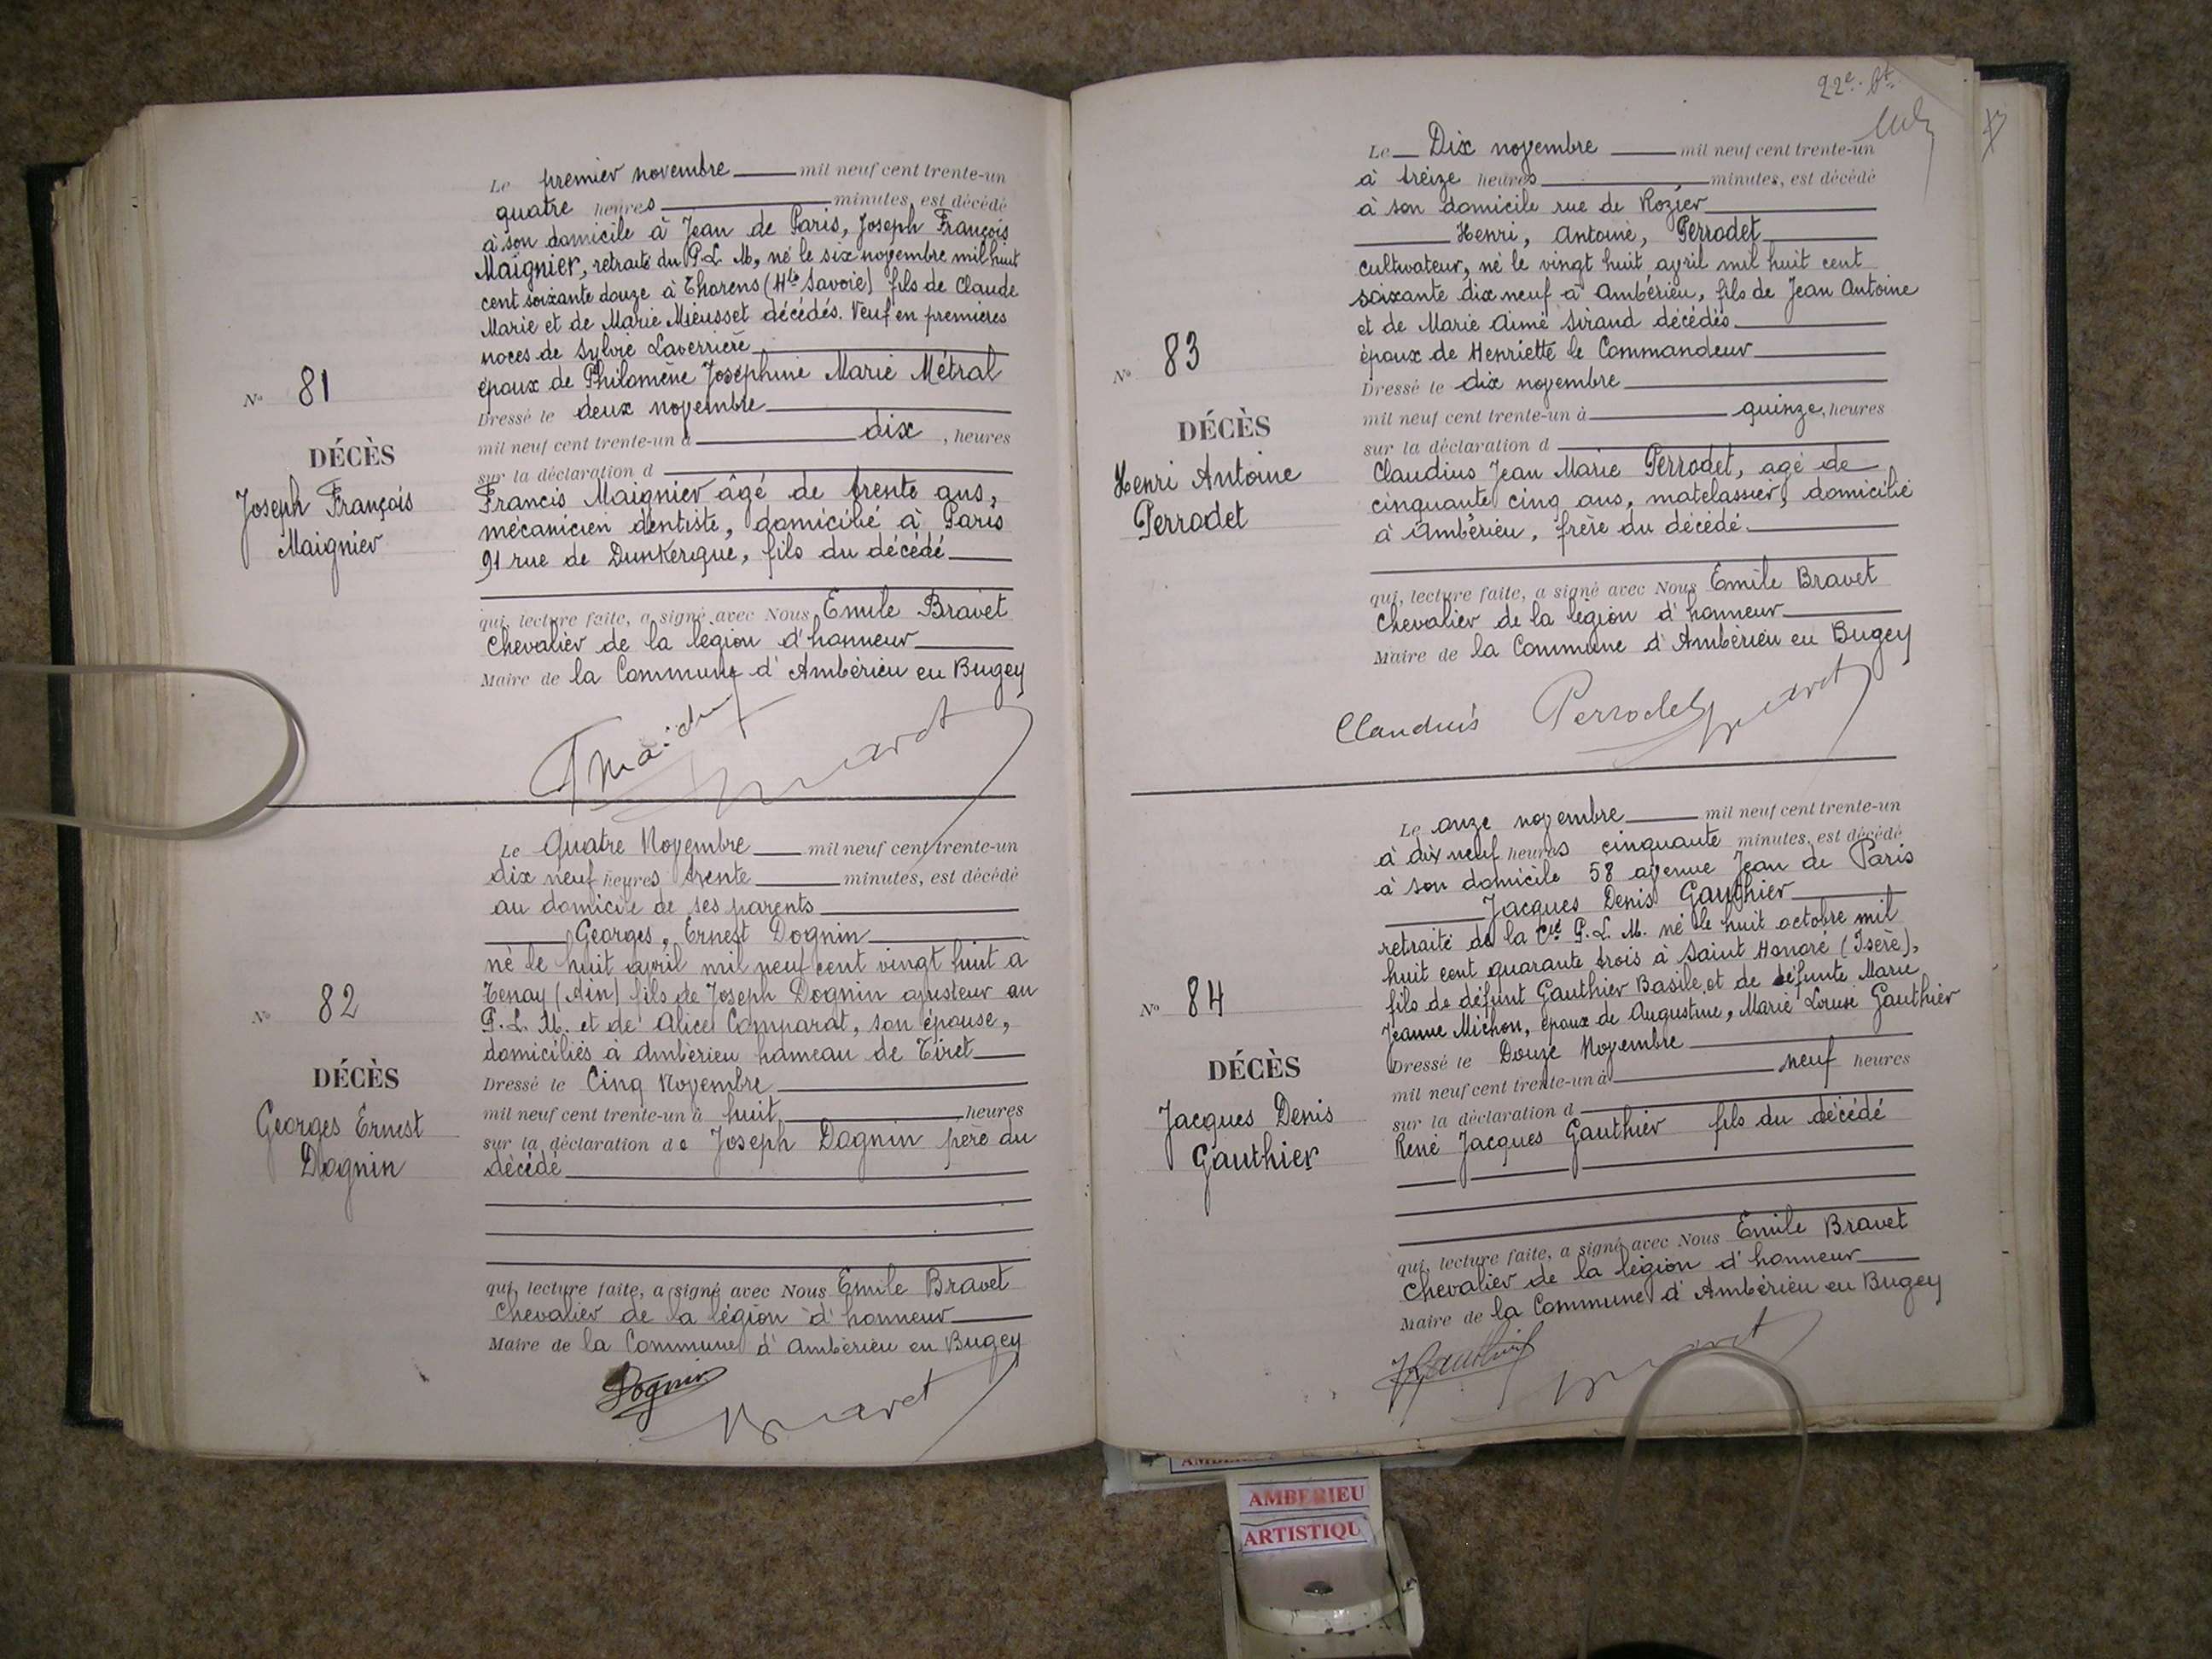 Le premier novembre mil neuf cent trente-un
quatre heures minutes, est décédé
à son domicile à Jean de Paris, Joseph François
Maignier, retraité du P.L.M., né le six novembre mil huit
cent soixante douze à Thorens (Hte Savoie) fils de Claude
Marie et de Marie Mieusset décédés. Veuf en premières
noces de Sylvie Laverrière
époux de Philomène Joséphine Marie Métral
Dressé le deux novembre
mil neuf cent trente-un à dix, heures
sur la déclaration d
Francis Maignier âgé de trente ans,
mécanicien dentiste, domicilié à Paris
91 rue de Dunkerque, fils du décédé
qui, lecture faite, a signé avec Nous Emile Bravet
Chevalier de la légion d'honneur
Maire de la Commune d'Ambérieu en Bugey
No 81
DÉCÈS
Joseph François
Maignier
Le Quatre Novembre mil neuf cent trente-un
dix neuf heures trente minutes, est décédé
au domicile de ses parents
Georges, Ernest Dognin
né le huit avril mil neuf cent vingt huit à
Tenay (Ain) fils de Joseph Dognin ajusteur au
P.L.M. et de Alice Comparat, son épouse,
domiciliés à Ambérieu hameau de Tiret
Dressé le Cinq Novembre
mil neuf cent trente-un à huit heures
sur la déclaration de Joseph Dognin père du
décédé
qui, lecture faite, a signé avec Nous Emile Bravet
Chevalier de la légion d'honneur
Maire de la Commune d'Ambérieu en Bugey
Dognin
Bravet
No 82
DÉCÈS
Georges Ernest
Dognin
Le Dix novembre mil neuf cent trente-un
à treize heures minutes, est décédé
à son domicile rue de Rozier
Henri, Antoine, Perrodet
cultivateur, né le vingt huit avril mil huit cent
soixante dix neuf à Ambérieu, fils de Jean Antoine
et de Marie Aimé Sirand décédés
époux de Henriette le Commandeur
Dressé le dix novembre
mil neuf cent trente-un à quinze, heures
sur la déclaration d
Claudius Jean Marie Perrodet, agé de
cinquante cinq ans, matelassier, domicilié
à Ambérieu, frère du décédé.
qui, lecture faite, a signé avec Nous Emile Bravet
Chevalier de la légion d'honneur
Maire de la Commune d'Ambérieu en Bugey
Claudius Perrodet Bravet
No 83
DÉCÈS
Henri Antoine
Perrodet
Le onze novembre mil neuf cent trente-un
à dix neuf heures cinquante minutes, est décédé
à son domicile 58 avenue Jean de Paris
Jacques Denis Gauthier
retraité de la Cie P.L.M. né le huit octobre mil
huit cent quarante trois à Saint Honoré (Isère),
fils de défunt Gauthier Basile et de défunte Marie
Jeanne Michon, époux de Augustine, Marie Louise Gauthier
Dressé le Douze Novembre
mil neuf cent trente-un à neuf heures
sur la déclaration d
René Jacques Gauthier fils du décédé
qui, lecture faite, a signé avec Nous Emile Bravet
Chevalier de la légion d'honneur
Maire de la Commune d'Ambérieu en Bugey
Gauthier Bravet
No 84
DÉCÈS
Jacques Denis
Gauthier
AMBERIEU
ARTISTIQU